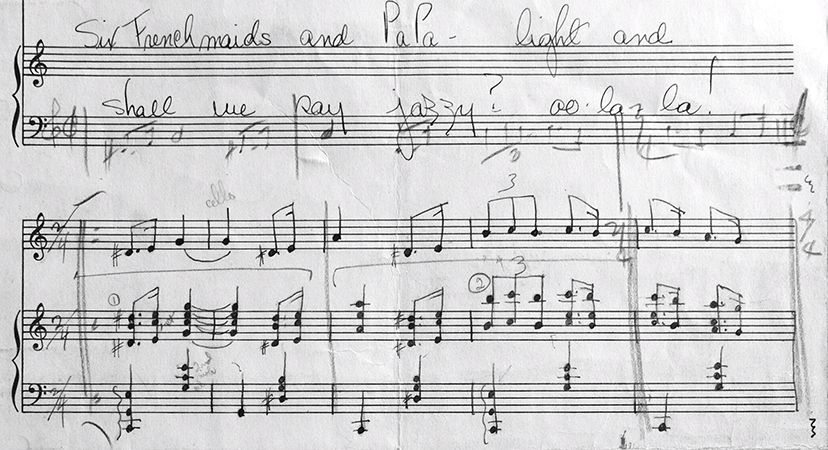 Six French maids and PaPa - light and
shall we pay jazzy? oo-la-la!
cello
3
2/4
2/4
4/4
① ② 3
2/4
2/4